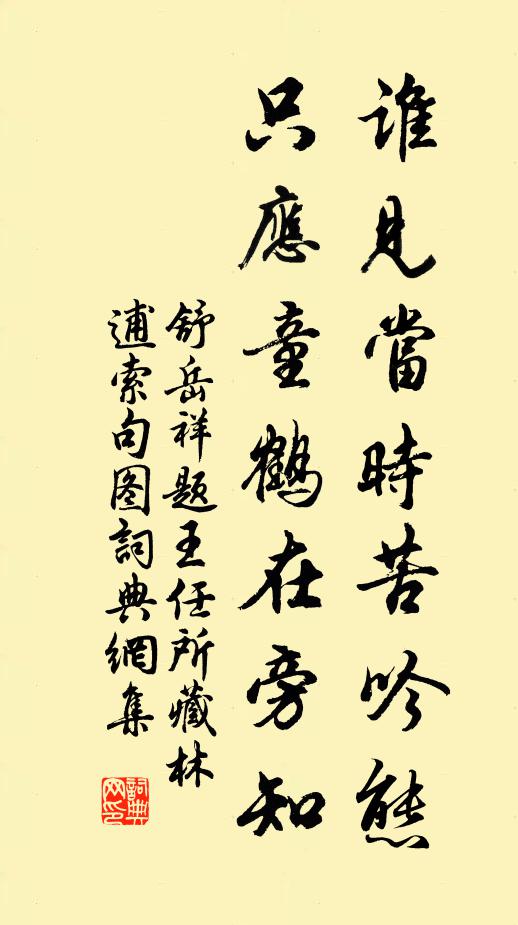 誰見當時苦吟態
只應童鶴在旁知
舒岳祥題王任所藏林
逋索句图詞典網集
詞典网印